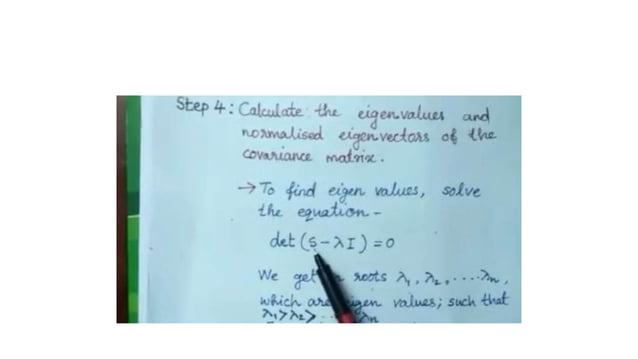 Step 4: Calculate the eigenvalues and
normalised eigenvectors of the
covariance matrix.
→ To find eigen values, solve
the equation -
det (S - λI) = 0
We get roots λ₁, λ₂, ....λn,
which are eigen values; such that
λ₁>λ₂> ... λn